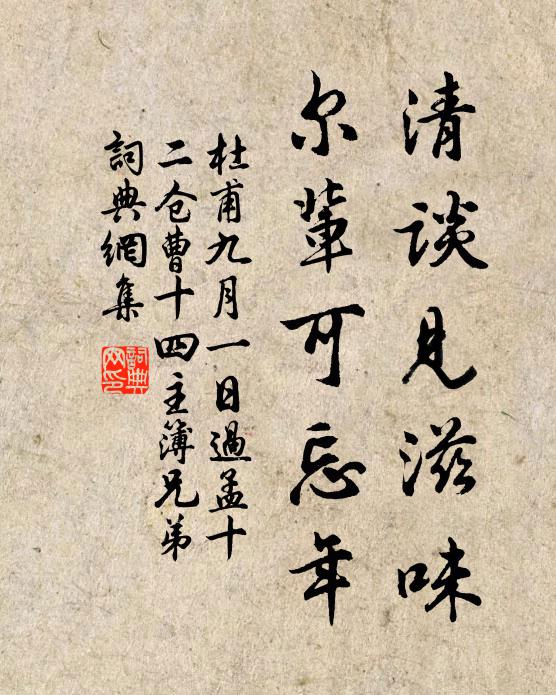 清談見滋味
尔輩可忘年
杜甫九月一日過孟十
二仓曹十四主簿兄弟
詞典網集
詞典
网印